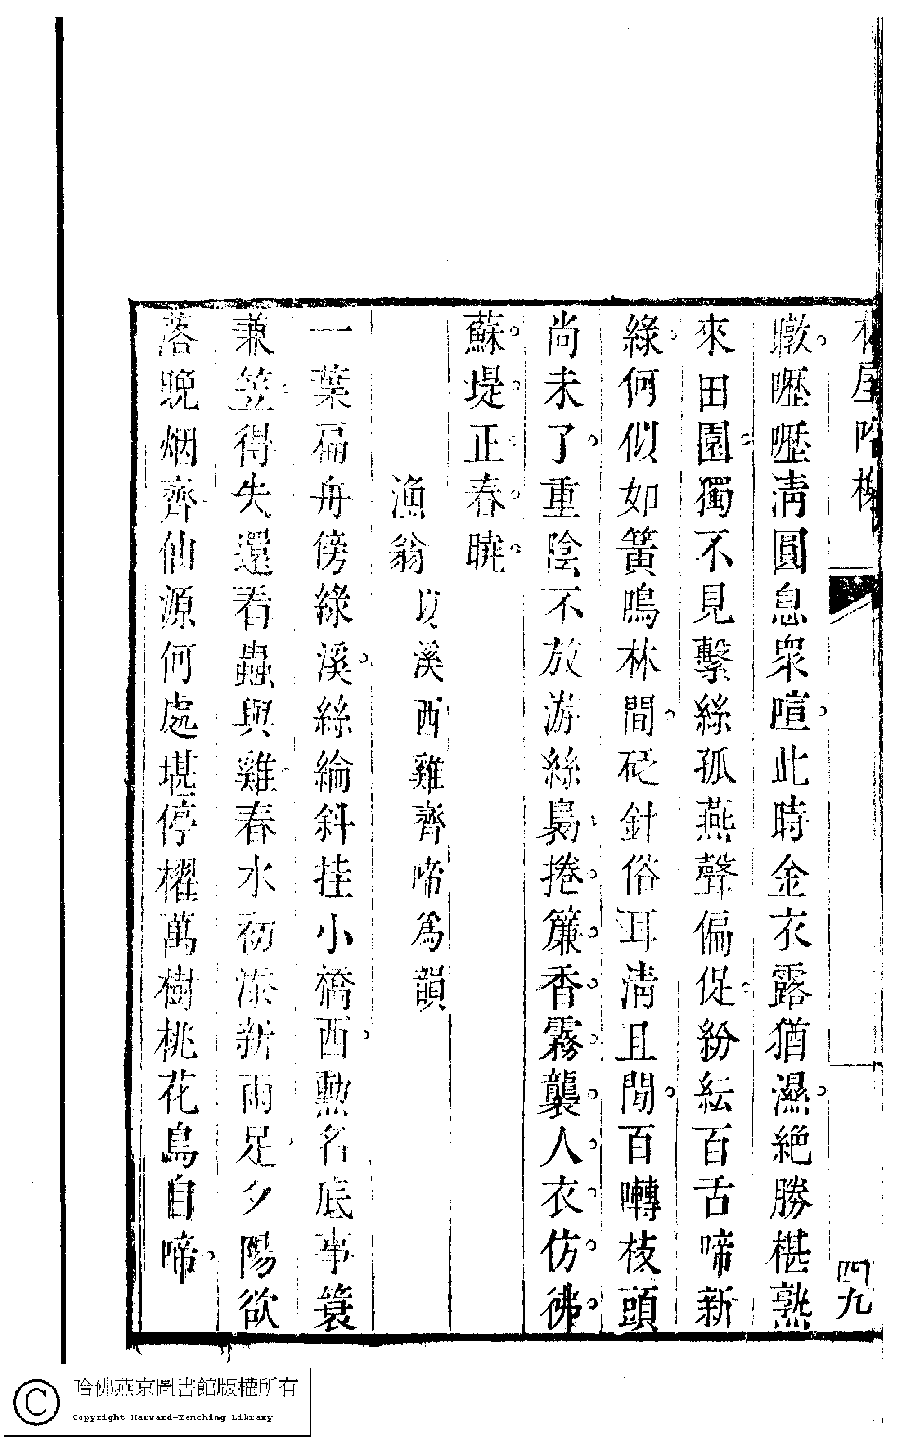 暾嚦嚦清圓息衆喧此時金衣露猶濕絶勝椹熟
來田園獨不見繫絲孤燕聲偏促紛紜百舌啼新
綠何似如簧鳴林間砭針俗耳清且閒百囀枝頭
尚未了重陰不放游絲裊捲簾香霧襲人衣仿彿
蘇堤正春曉
漁翁 以溪西雞齊啼爲韻
一葉扁舟傍綠溪絲綸斜挂小橋西勲名底事簑
兼笠得失還看蟲與雞春水初添新雨足夕陽欲
落晚烟齊仙源何處堪停櫂萬樹桃花鳥自啼
四九
哈佛燕京圖書館版權所有
Copyright Harvard-Yenching Library